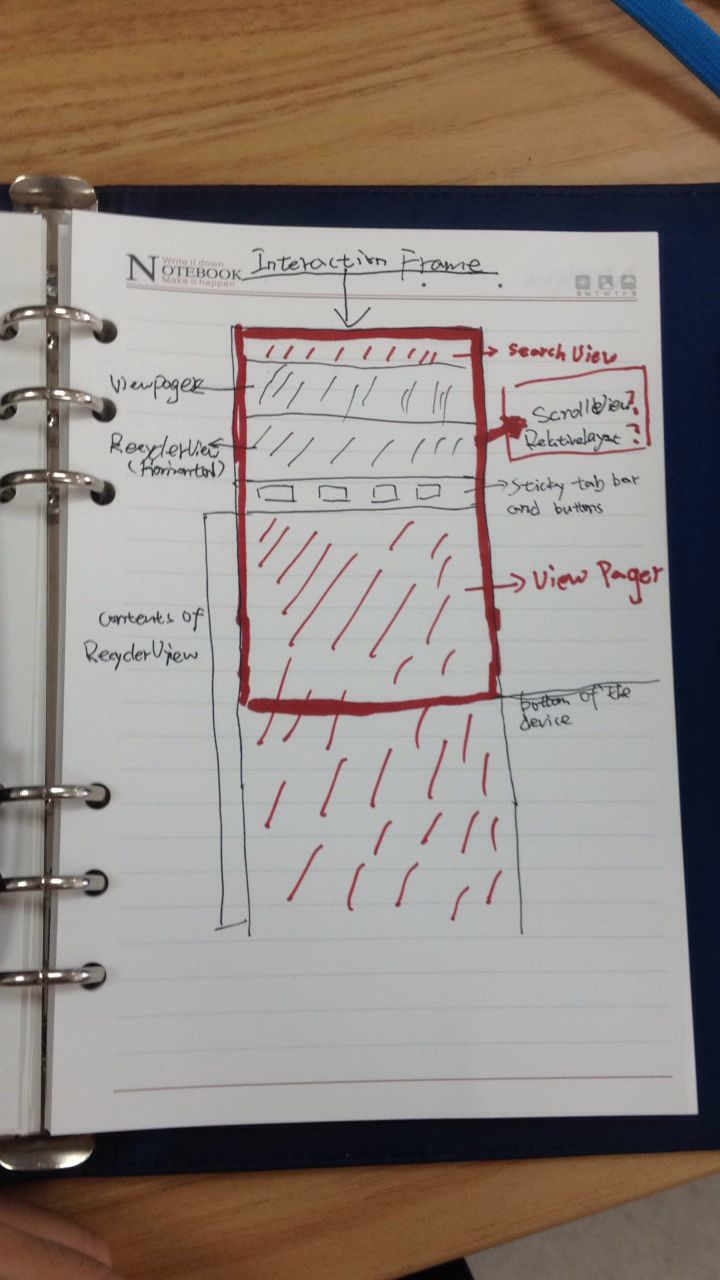 Write it down
NOTEBOOK
Make it happen
Interaction Frame
S M T W T F S
SearchView
Viewpager
ScrollView?
RelativeLayout?
RecyclerView
(horizontal)
Sticky tab bar
and buttons
View Pager
Contents of
RecyclerView
bottom of the
device